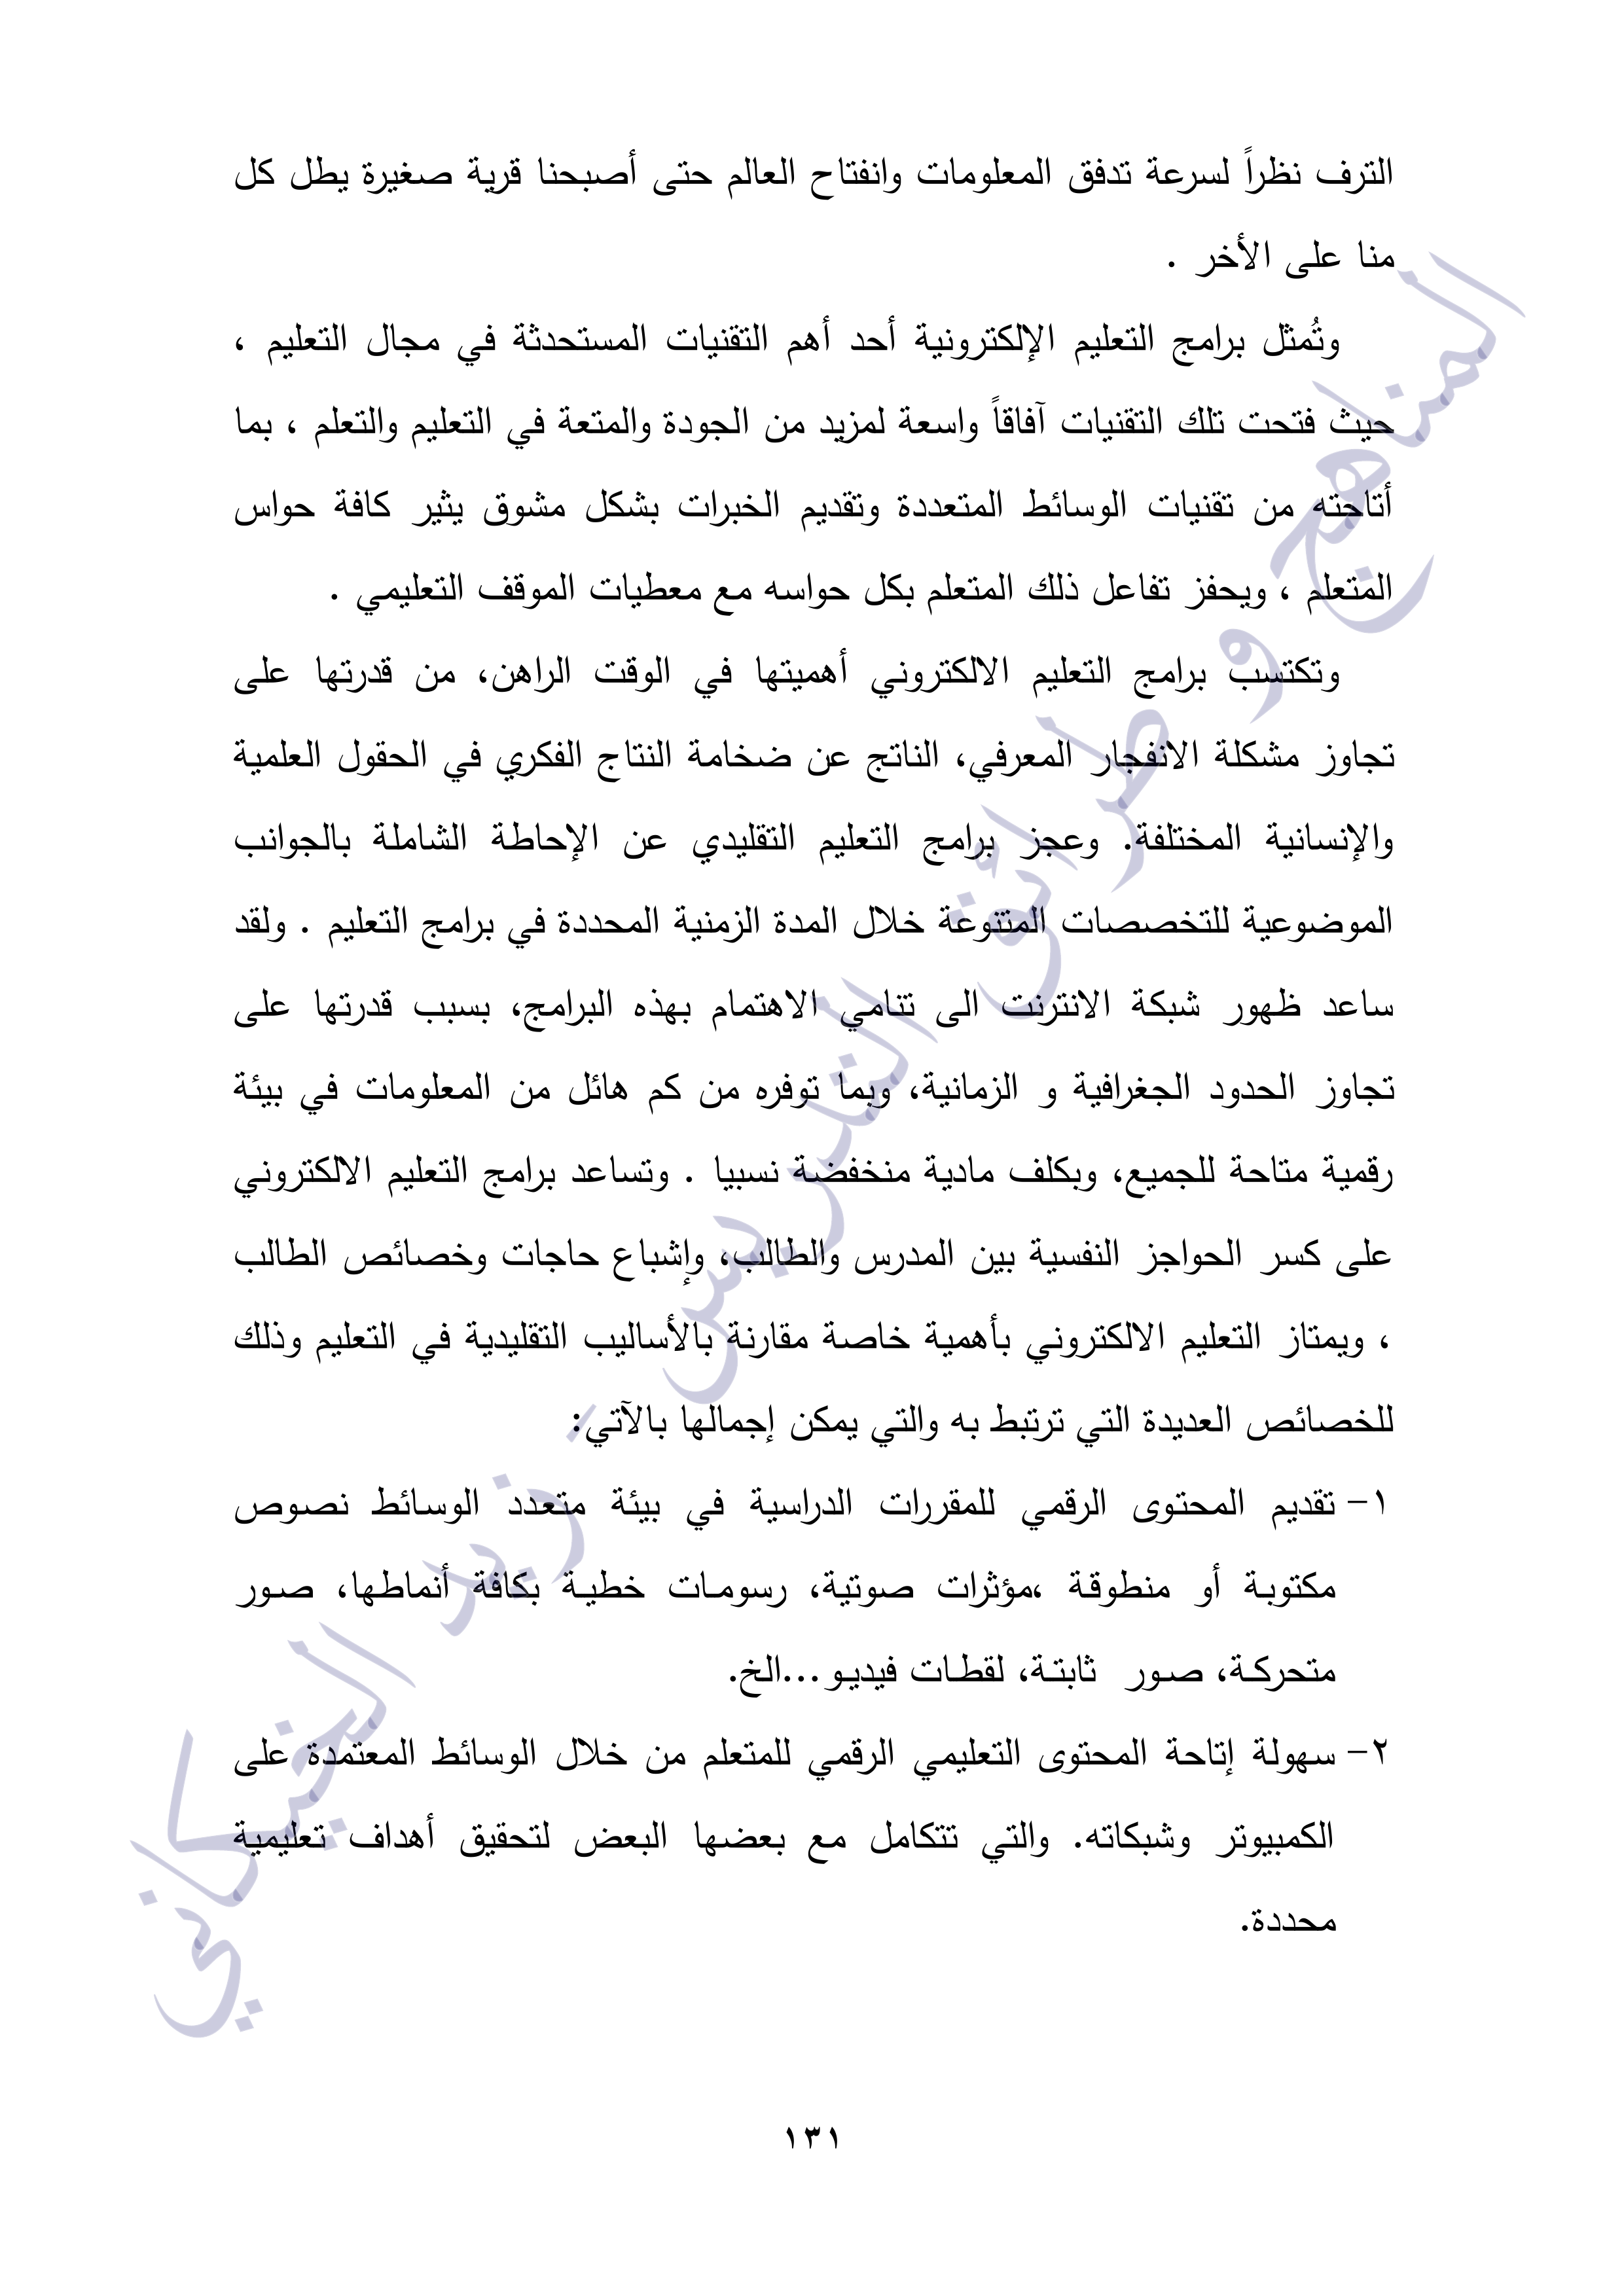 الترف نظراً لسرعة تدفق المعلومات وانفتاح العالم حتى أصبحنا قرية صغيرة يطل كل
منا على الأخر .
وتُمثل برامج التعليم الإلكترونية أحد أهم التقنيات المستحدثة في مجال التعليم ،
حيث فتحت تلك التقنيات آفاقاً واسعة لمزيد من الجودة والمتعة في التعليم والتعلم ، بما
أتاحته من تقنيات الوسائط المتعددة وتقديم الخبرات بشكل مشوق يثير كافة حواس
المتعلم ، ويحفز تفاعل ذلك المتعلم بكل حواسه مع معطيات الموقف التعليمي .
وتكتسب برامج التعليم الالكتروني أهميتها في الوقت الراهن، من قدرتها على
تجاوز مشكلة الانفجار المعرفي، الناتج عن ضخامة النتاج الفكري في الحقول العلمية
والإنسانية المختلفة. وعجز برامج التعليم التقليدي عن الإحاطة الشاملة بالجوانب
الموضوعية للتخصصات المتنوعة خلال المدة الزمنية المحددة في برامج التعليم . ولقد
ساعد ظهور شبكة الانترنت الى تنامي الاهتمام بهذه البرامج، بسبب قدرتها على
تجاوز الحدود الجغرافية و الزمانية، وبما توفره من كم هائل من المعلومات في بيئة
رقمية متاحة للجميع، وبكلف مادية منخفضة نسبيا . وتساعد برامج التعليم الالكتروني
على كسر الحواجز النفسية بين المدرس والطالب، وإشباع حاجات وخصائص الطالب
، ويمتاز التعليم الالكتروني بأهمية خاصة مقارنة بالأساليب التقليدية في التعليم وذلك
للخصائص العديدة التي ترتبط به والتي يمكن إجمالها بالآتي:
١- تقديم المحتوى الرقمي للمقررات الدراسية في بيئة متعدد الوسائط نصوص
مكتوبة أو منطوقة ،مؤثرات صوتية، رسومات خطية بكافة أنماطها، صور
متحركة، صور ثابتة، لقطات فيديو...الخ.
٢- سهولة إتاحة المحتوى التعليمي الرقمي للمتعلم من خلال الوسائط المعتمدة على
الكمبيوتر وشبكاته. والتي تتكامل مع بعضها البعض لتحقيق أهداف تعليمية
محددة.
المناهج و طرائق التدريس - زيد الخيكاني
١٣١